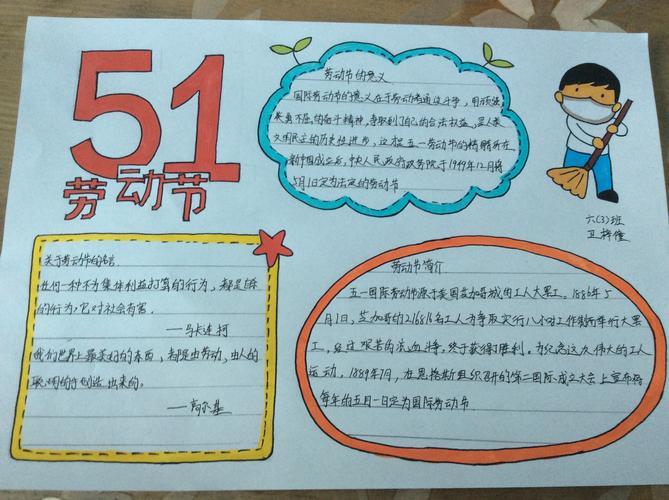 51
劳动节
劳动节的意义
国际劳动节的意义在于劳动者通过斗争，用顽强
英勇不屈的奋斗精神，争取到了自己的合法权益，是人类
文明民主的历史性进步，这才是五一劳动节的精髓所在
新中国成立后，中央人民政府政务院于1949年12月将
5月1日定为法定的劳动节
六(3)班
关于劳动节的名言
任何一种不为集体利益打算的行为，都是自杀
的行为，它对社会有害。
——马卡连柯
我们世界上最美好的东西，都是由劳动，由人的
聪明的手创造出来的。
——高尔基
劳动节简介
五一国际劳动节源于美国芝加哥城的工人大罢工。1886年5
月1日，芝加哥的216816名工人为争取实行八小时工作制而举行大罢
工，经过艰苦的流血斗争，终于获得了胜利。为纪念这次伟大的工人
运动，1889年7月，在恩格斯组织召开的第二国际成立大会上宣布将
每年的五月一日定为国际劳动节